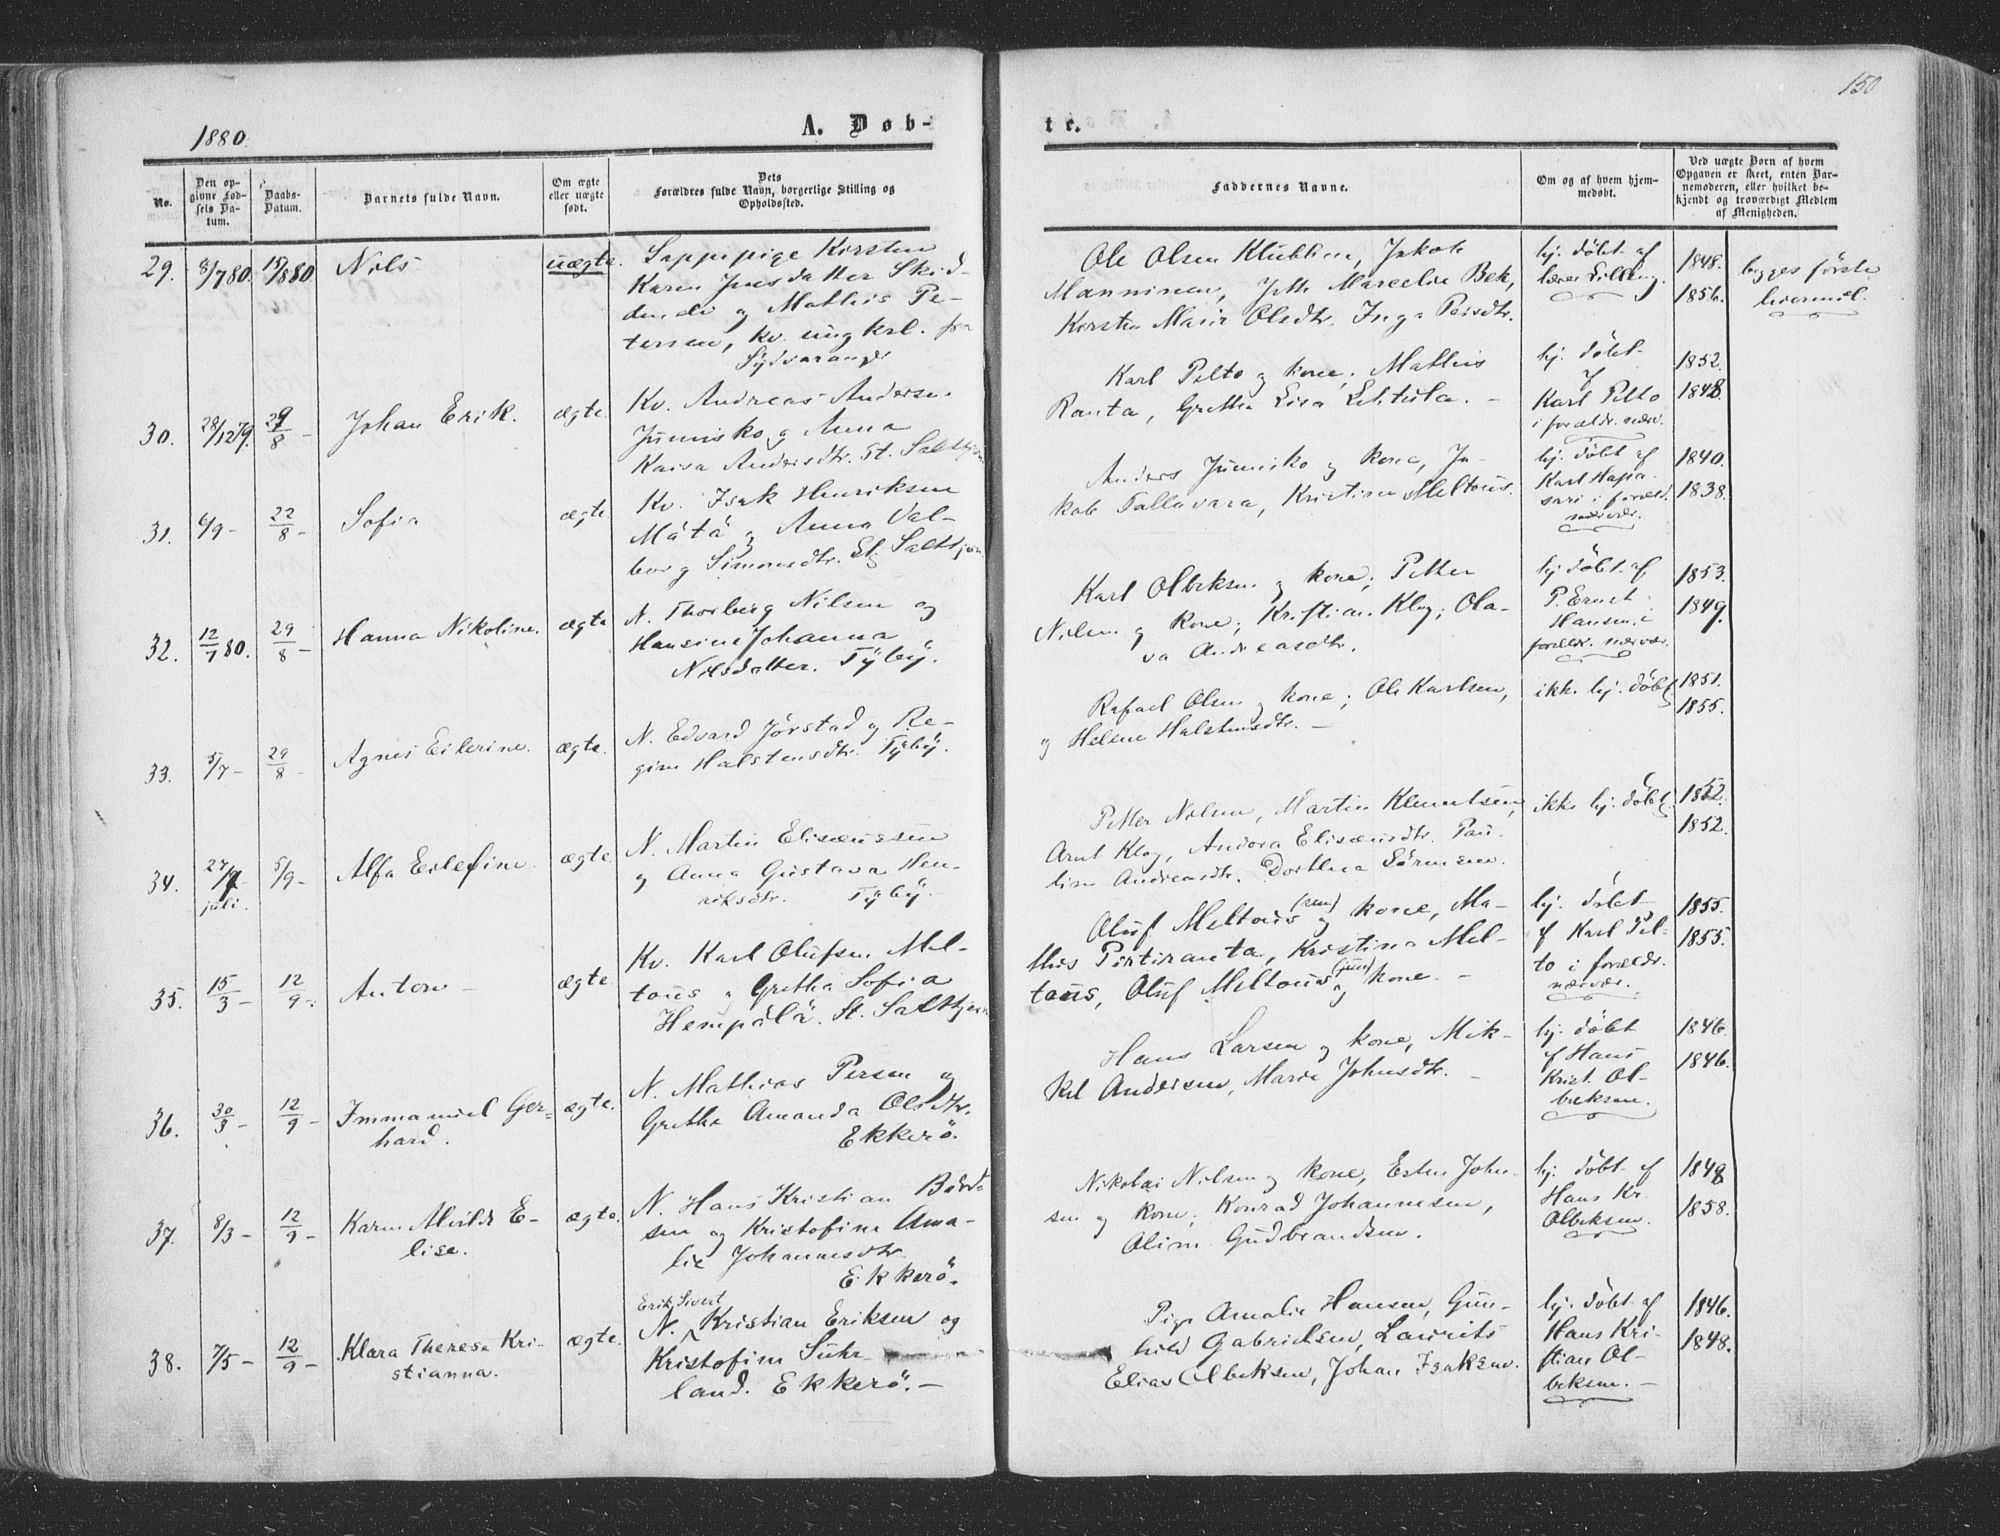 150
1880.
A. Døb-
te.
No.
Den op-
givne Fød-
sels Da-
tum.
Daabs-
Datum.
Barnets fulde Navn.
Om ægte
eller uægte
født.
Dets
Forældres fulde Navn, borgerlige Stilling og
Opholdssted.
Faddernes Navne.
Om og af hvem hjem-
medøbt.
Ved uægte Børn af hvem
Opgaven er skeet, enten Bar-
nemoderen, eller hvilket be-
kjendt og troværdigt Medlem
af Menigheden.
29. 8/7 80. 15/8 80 Nils uægte.
Lappepige Kirsten
Karen Jensdatter Skid-
og Mathis Pe-
tersen, kv. ungkrl. fra
Sydvaranger
Ole Olsen Klubben, Jakob
Manninen, Marcelie Bek,
Kirsten Marie Olsdtr. Inga Persdtr.
hj. døbt af
lærer Lilleng.
1848.
1856.
begges første
leiermål.
30. 28/12 79. 29/8 - Johan Erik. ægte.
Kv. Andreas Andersen
Junnisko og Anna
Kaisa Andersdtr. St. Saltkjern
Karl Pelto og kone, Mathis
Ranta, Gretha Lisa Lehtola. -
hj. døbt
af
Karl Pelto
i foræld. nærv.
1852.
1848.
31. 6/9 - 22/8 - Sofia ægte.
Kv. Isak Henriksen
Mätä og Anna Val-
borg Simonsdtr. St. Saltkjern
Anders Junnisko og kone, Ja-
kob Tallavara, Kristina Meltaus.
hj. døbt af
Karl Hapa-
sari i foræld.
nærvær.
1840.
1838.
32. 12/7 80. 29/8 - Hanna Nikoline. ægte
N. Thorberg Nilsen og
Hansine Johanna
Nilsdatter. Tyby.
Karl Olbeksen og kone; Petter
Nilsen og kone; Kristian Klog; Ola-
va Andreasdtr.
hj. døbt af
P. Ernst
Hansen, i
foreldr. nærvær.
1853.
1849.
33. 5/7 - 29/8 - Agnes Eilerine. ægte.
N. Edvard Jørstad og Re-
gine Halstensdtr. Tyby.
Rafael Olsen og kone; Ole Karlsen,
og Helene Halstensdtr. -
ikke hj. døbt
1851.
1855.
34. 27/7 5/9 - Alfa Eilefine. ægte.
juli.
N. Martin Elisæussen
og Anna Gustava Hen-
riksdtr. Tyby.
Petter Nilsen, Martin Klemetsen,
Arnt Klog, Andora Elisæusdtr. Pau-
line Andreasdtr. Dorthea Sørensen.
ikke hj. døbt
1852.
1852.
35. 15/3 - 12/9 -. Anton - ægte.
Kv. Karl Olufsen Mel-
taus og Gretha Sofia
Hempälä. St. Saltkjern
Oluf Meltaus (sen) og kone, Ma-
this Portiranta, Kristina Mel-
taus, Oluf Meltaus (jun) og kone. -
hj. døbt
af Karl Pel-
to i foreldr.
nærvær.
1855.
1855.
36. 30/3 - 12/9 - Immanuel Ger-
hard. ægte.
N. Mathias Persen og
Gretha Amanda Olsdtr.
Ekkerö.
Hans Larsen og kone, Mik-
kel Andersen, Marie Johnsdtr. -
hj. døbt
af Hans
Krist. Ol-
beksen.
1846.
1846.
37. 8/3 - 12/9 - Karen Alvilde E-
lise. ægte.
N. Hans Kristian Bårds
sen og Kristofine Ama-
lie Johannesdtr.
Ekkerö.
Nikolai Nilsen og kone, Esten John-
sen og kone; Konrad Johannesen,
Oline Gudbrandsen.
hj. døbt af
Hans Kr.
Olbeksen.
1848
1858.
38. 7/5 - 12/9 - Klara Theresa Kri-
stianna. ægte.
Erik Sivert
N. Kristian Eriksen og
Kristofine Suhr-
land. Ekkerö. -
Pige Amalie Hansen, Gun-
hild Gabrielsen, Laurits
Elias Olbeksen, Johan Isaksen.
hj. døbt af
Hans Kri-
stian Ol-
beksen. -
1846.
1848.